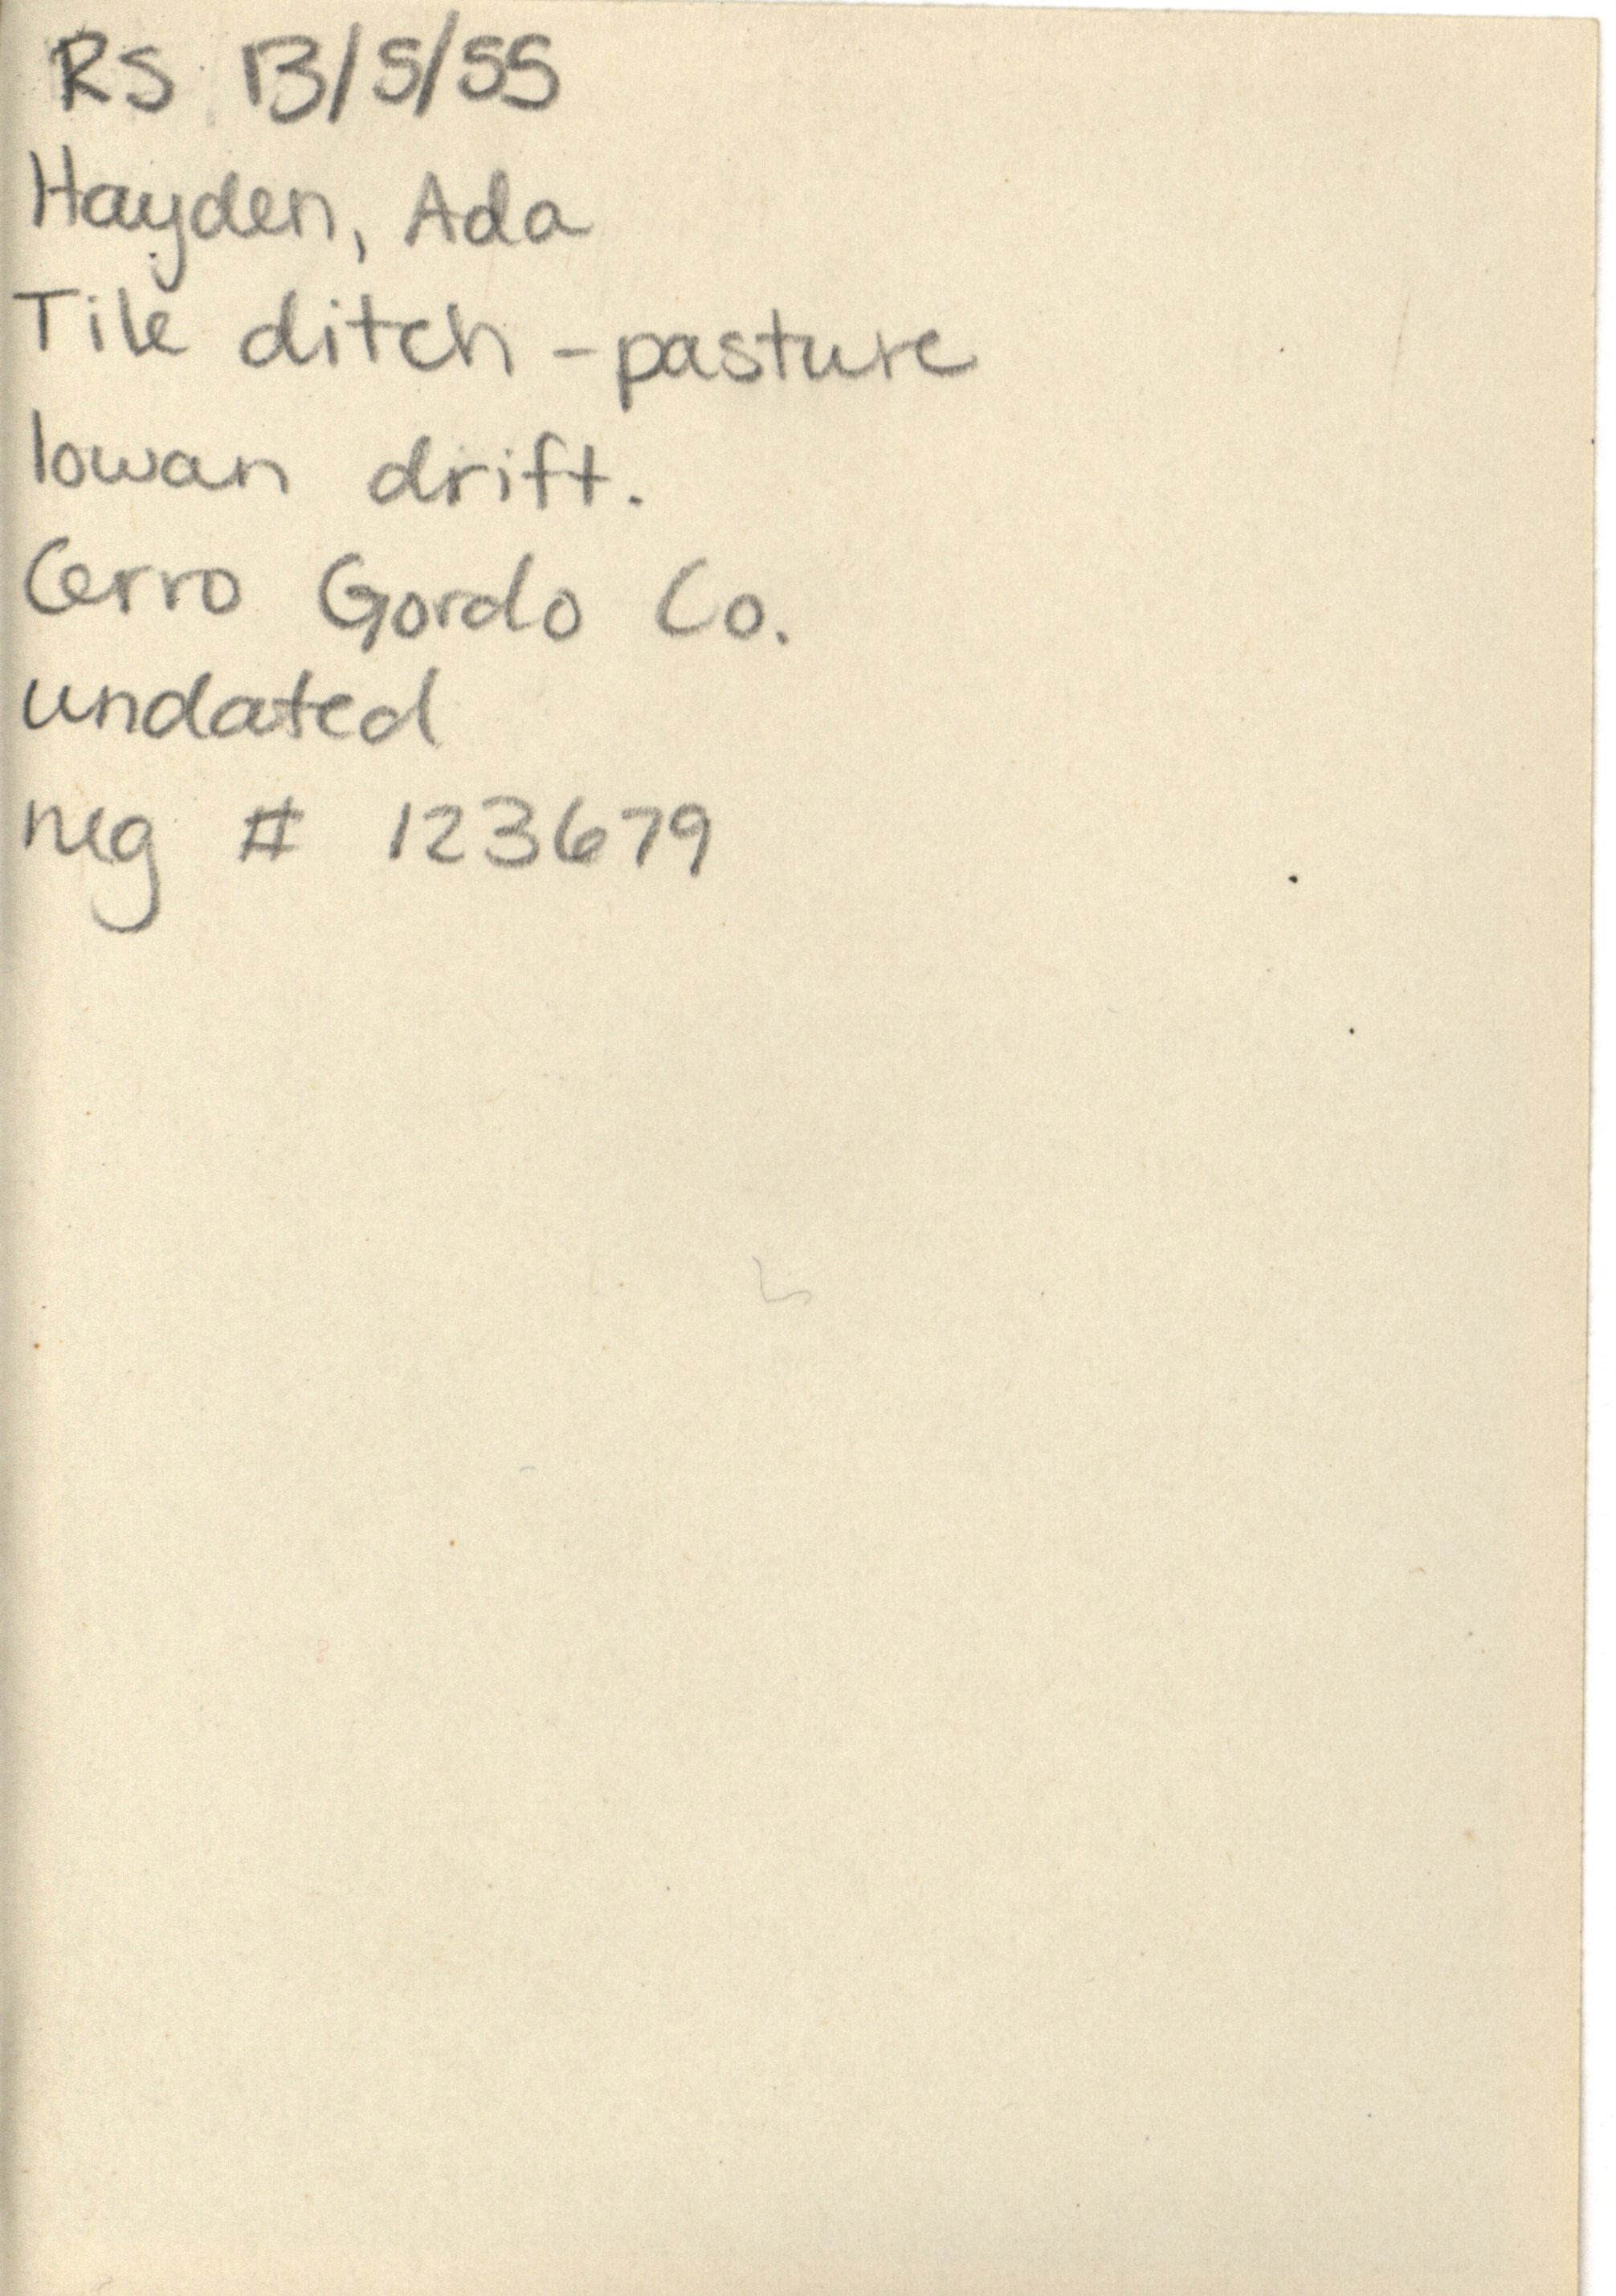 RS 13/5/55
Hayden, Ada
Tile ditch - pasture
Iowan drift.
Cerro Gordo Co.
undated
neg # 123679